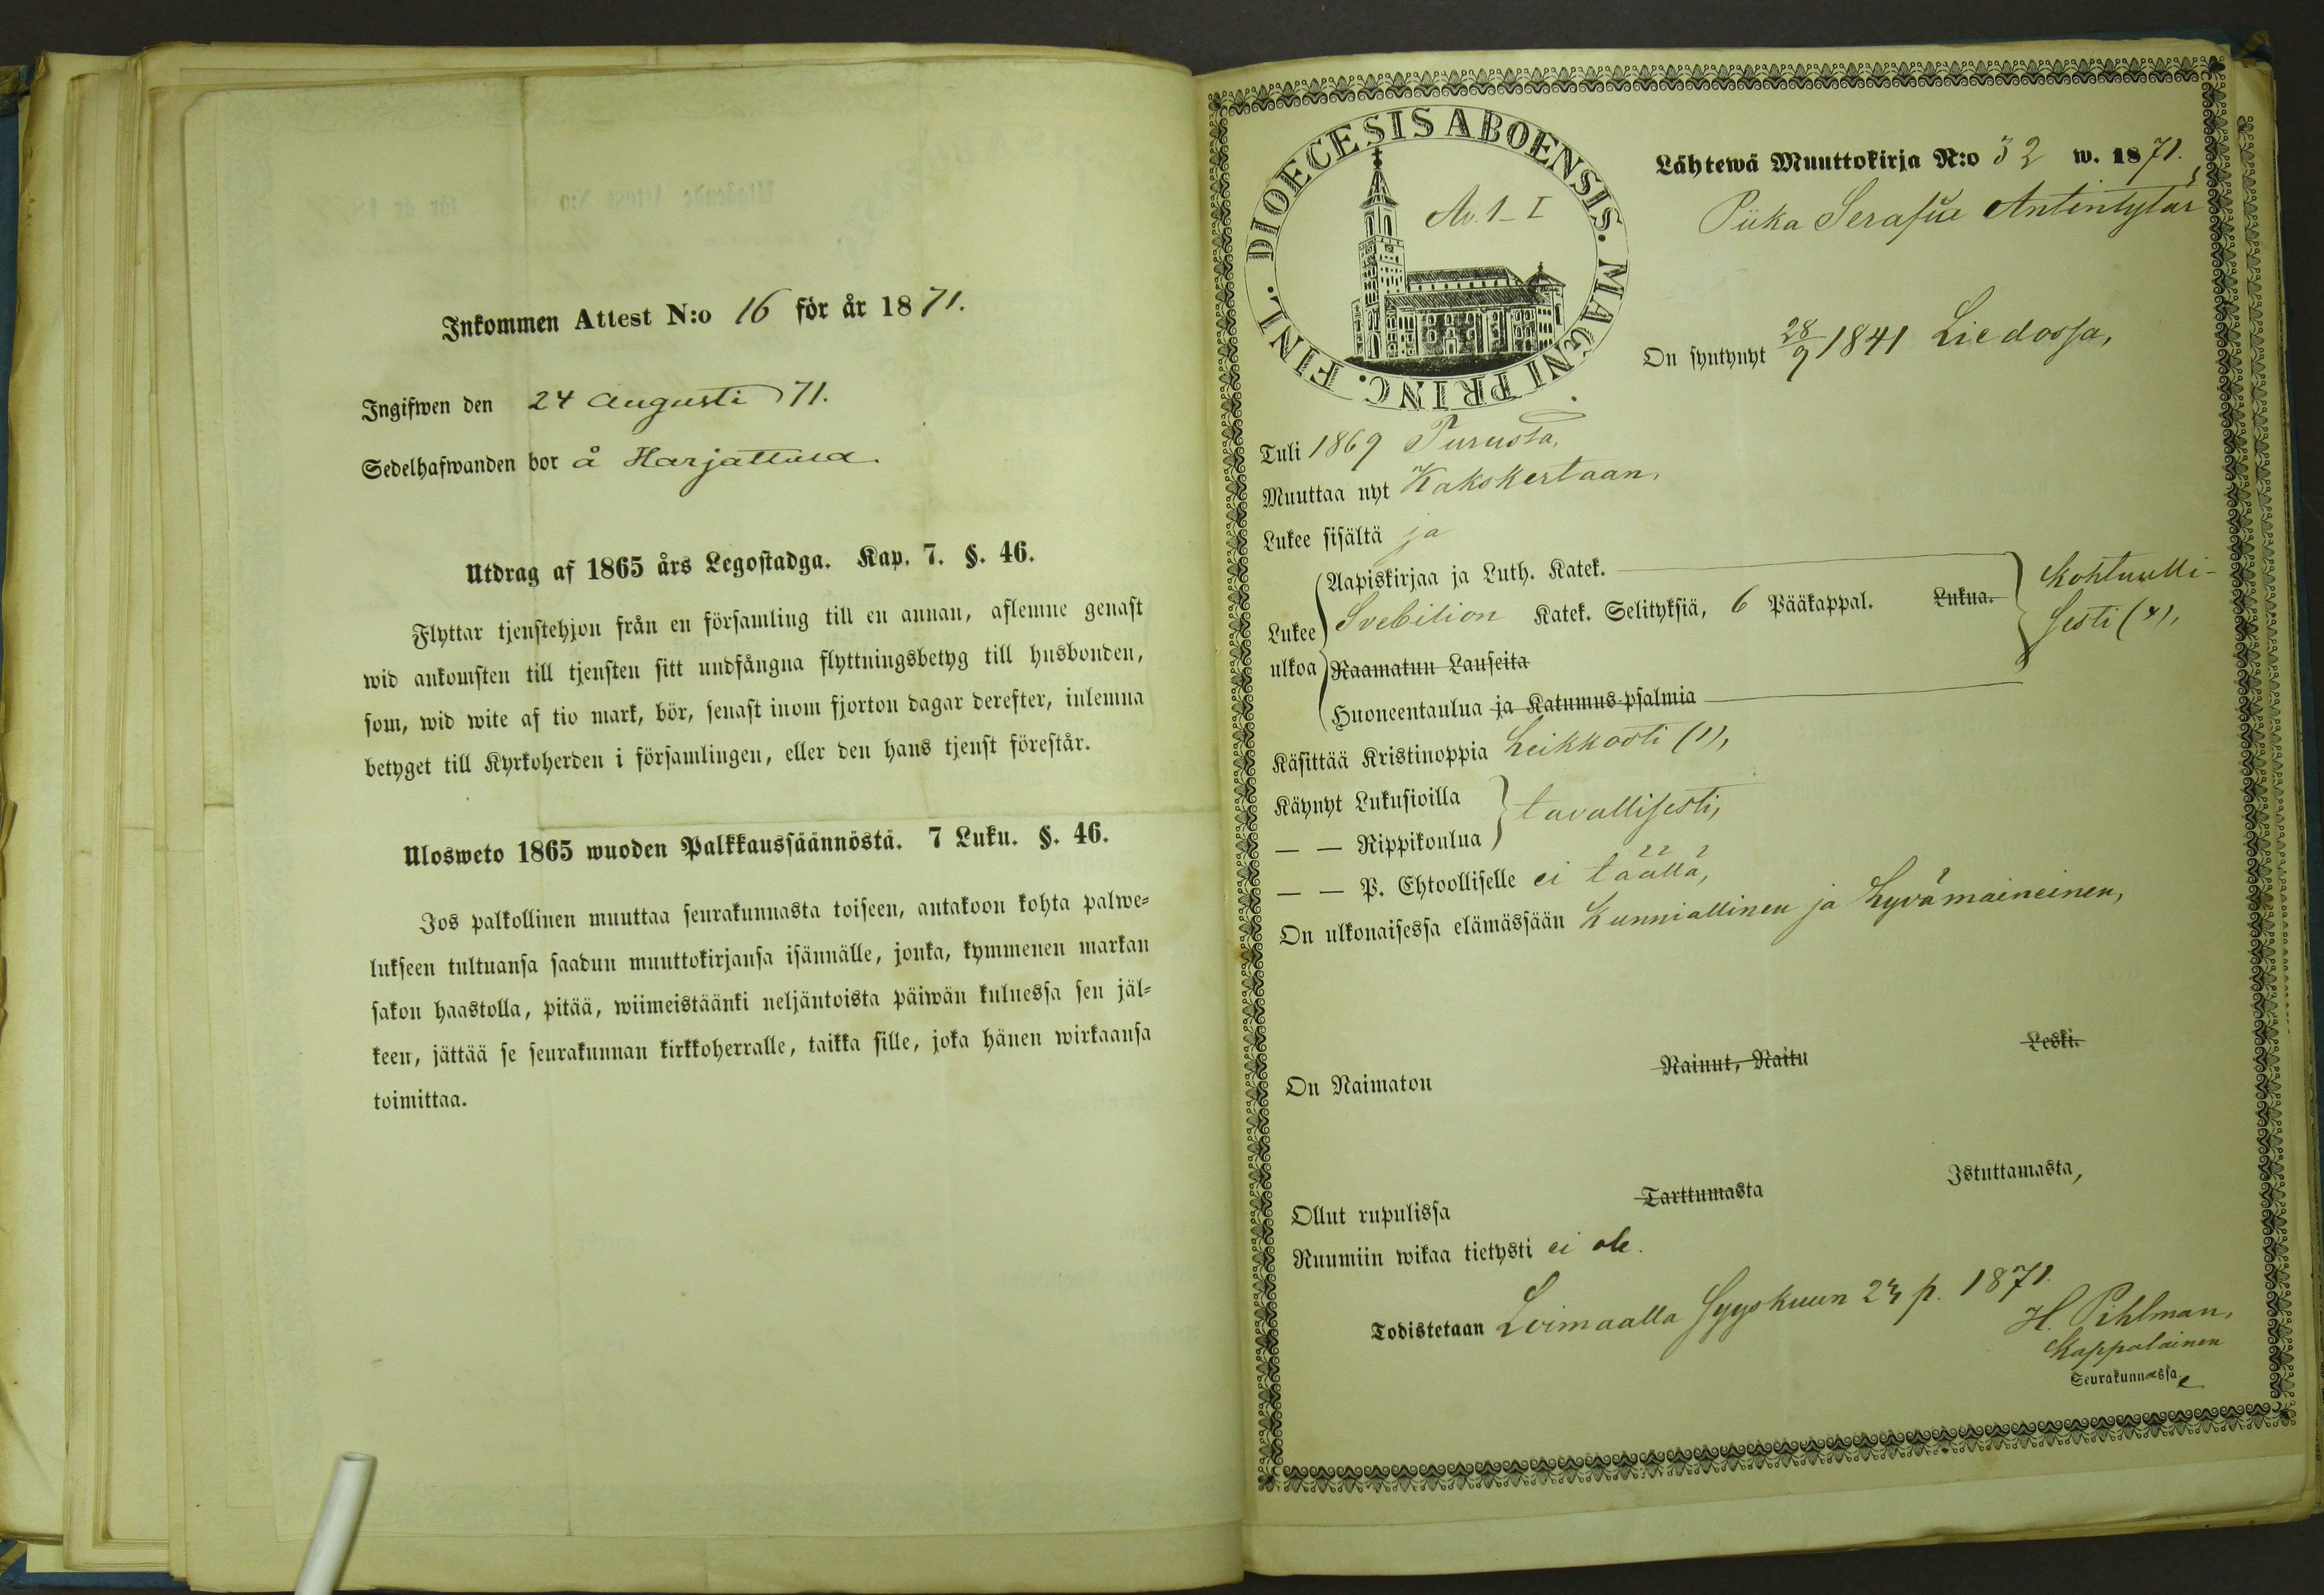 Inkommen Attest N:o 16 för år 1871.
Ingifwen den 24 Augusti 71.
Sedelhafwanden bor å Harjattula.
Utdrag af 1865 års Legostadga. Kap. 7. §. 46.
Flyttar tjenstehjon från en församling till en annan, aflemne genast
wid ankomsten till tjensten sitt undfångna flyttningsbetyg till husbonden,
som, wid wite af tio mark, bör, senast inom fjorton dagar derefter, inlemna
betyget till Kyrkoherden i församlingen, eller den hans tjenst förestår.
Ulosweto 1865 wuoden Palkkaussäännöstä. 7 Luku. §. 46.
Jos palkollinen muuttaa seurakunnasta toiseen, antakoon kohta palwe-
lukseen tultuansa saadun muuttokirjansa isännälle, jonka, kymmenen markan
sakon haastolla, pitää, wiimeistäänki neljäntoista päiwän kuluessa sen jäl-
keen, jättää se seurakunnan kirkkoherralle, taikka sille, joka hänen wirkaansa
toimittaa.
DIOECESIS ABOENSIS. MAGNI PRINC. FINL.
1-I
Lähtewä Muuttokirja N:o 32 w. 1871.
Piika Serafia Antintytär
On syntynyt 28/9 1841 Liedossa,
Tuli 1869 Turusta,
Muuttaa nyt Kakskertaan,
Lukee sisältä ja
Lukee ulkoa
Aapiskirjaa ja Luth. Katek.
Svebilion Katek. Selityksiä, 6 Pääkappal. Lukua.
Raamatun Lauseita
Huoneentaulua ja Katumus-psalmia
Kohtuulli-
sesti (4),
Käsittää Kristinoppia heikkosti (1),
Käynyt Lukusioilla
— — Rippikoulua
tavallisesti,
— — P. Ehtoolliselle ei täällä,
On ulkonaisessa elämässään kunniallinen ja hyvämaineinen,
On Naimaton Nainut, Naitu Leski.
Ollut rupulissa Tarttumasta Istuttamasta,
Ruumiin wikaa tietysti ei ole.
Todistetaan Loimaalla Syyskuun 23 p. 1871.
H. Pihlman,
Kappalainen
Seurakunnassa.